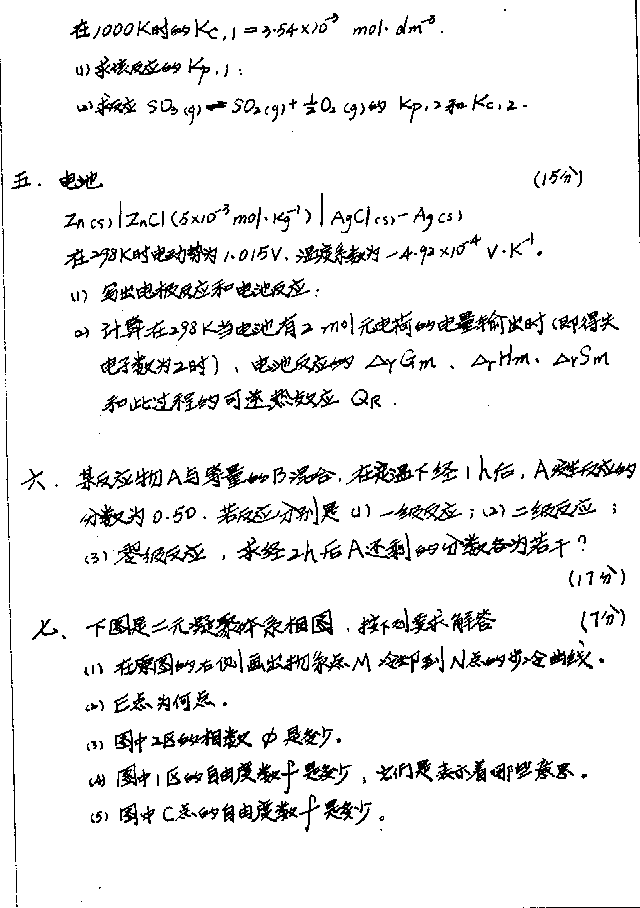 在1000K时的Kc,1=3.54×10⁻³ mol·dm⁻³.
(1)求该反应的Kp,1;
(2)求反应 SO₃(g) ⇌ SO₂(g)+½O₂(g)的 Kp,2和Kc,2.
五. 电池 (15分)
Zn(s)|ZnCl(5×10⁻³mol·kg⁻¹)|AgCl(s)-Ag(s)
在298K时电动势为1.015V,温度系数为-4.92×10⁻⁴ V·K⁻¹。
(1) 写出电极反应和电池反应;
(2) 计算在298K当电池有2mol元电荷的电量输出时(即得失
电子数为2时),电池反应的 ΔrGm、ΔrHm、ΔrSm
和此过程的可逆热效应 QR.
六. 某反应物A与等量的B混合,在恒温下经1h后,A发生反应的
分数为0.50.若反应分别是(1)一级反应;(2)二级反应;
(3)零级反应,求经2h后A还剩的分数各为若干?
(17分)
七、下图是二元凝聚体系相图,按下列要求解答 (7分)
(1) 在原图的右侧画出物系点M冷却到N点的步冷曲线。
(2) E点为何点.
(3) 图中2区的相数 φ 是多少。
(4) 图中1区的自由度数f是多少,它们是表示着哪些意思。
(5) 图中C点的自由度数f是多少。